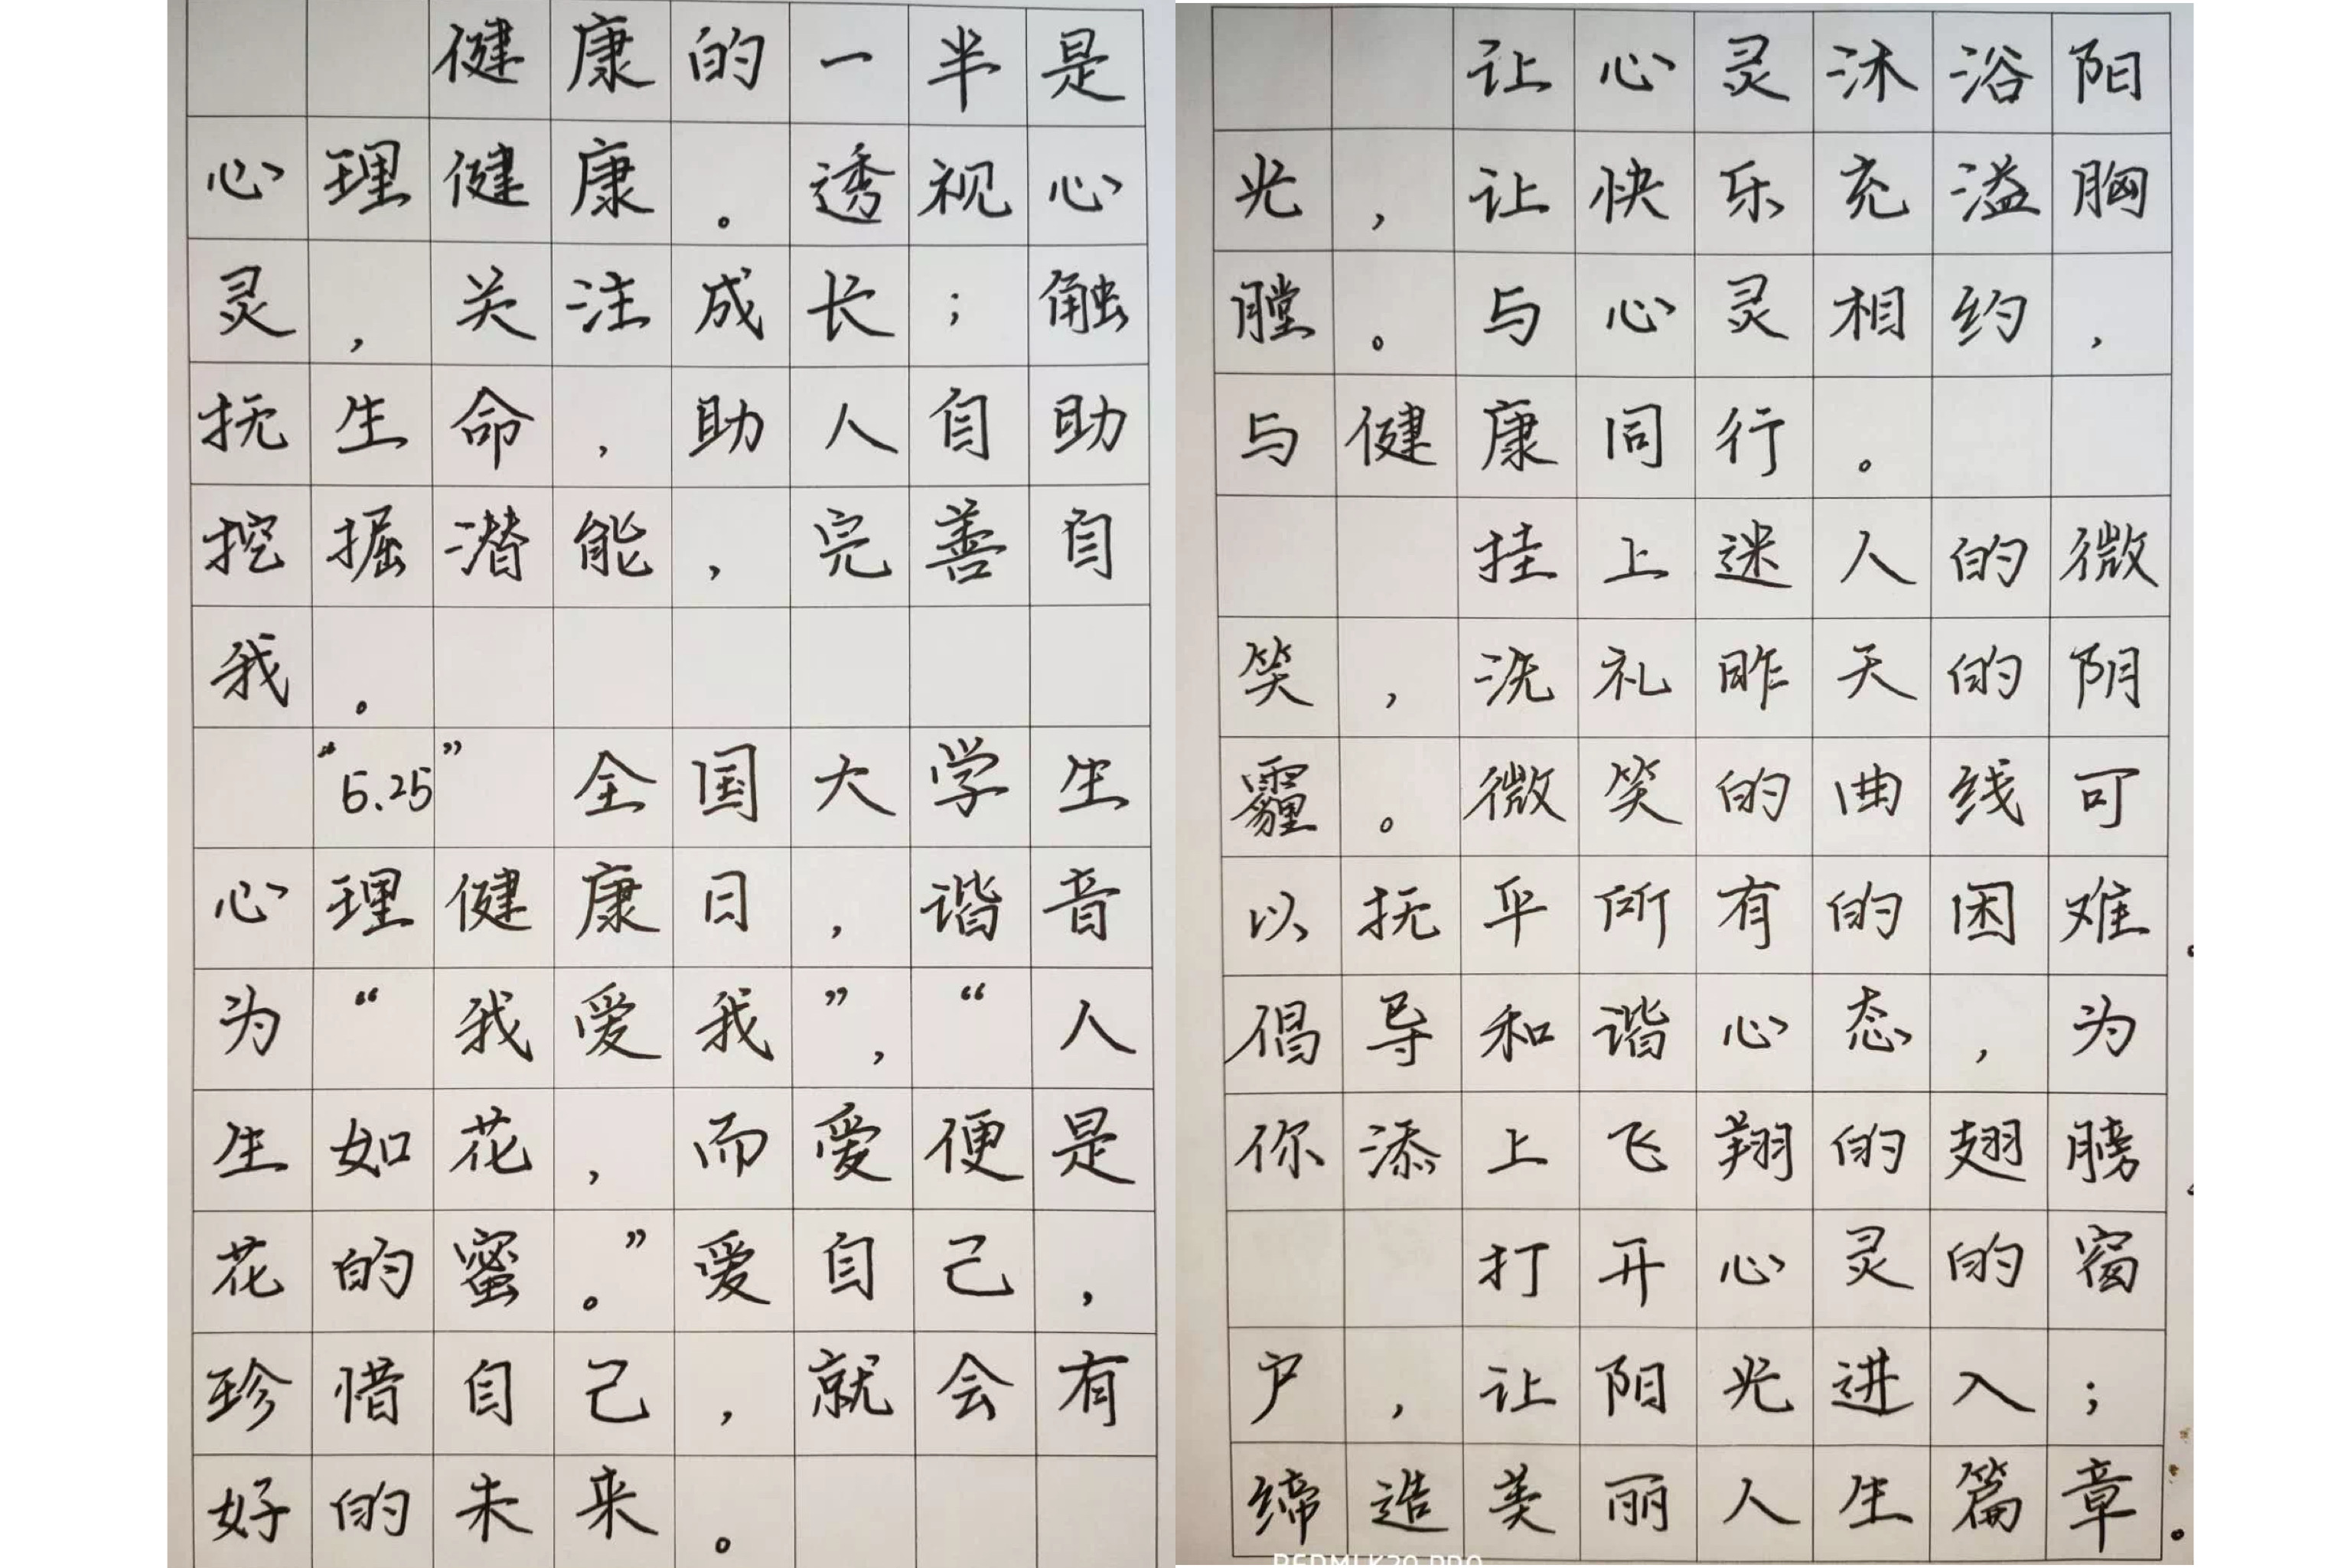 健康的一半是
心理健康。透视心
灵，关注成长；触
抚生命，助人自助
挖掘潜能，完善自
我。
“5.25”全国大学生
心理健康日，谐音
为“我爱我”，“人
生如花，而爱便是
花的蜜。”爱自己，
珍惜自己，就会有
好的未来。
让心灵沐浴阳
光，让快乐充溢胸
膛。与心灵相约，
与健康同行。
挂上迷人的微
笑，洗礼昨天的阴
霾。微笑的曲线可
以抚平所有的困难。
倡导和谐心态，为
你添上飞翔的翅膀。
打开心灵的窗
户，让阳光进入；
缔造美丽人生篇章。
REDMI K20 PRO